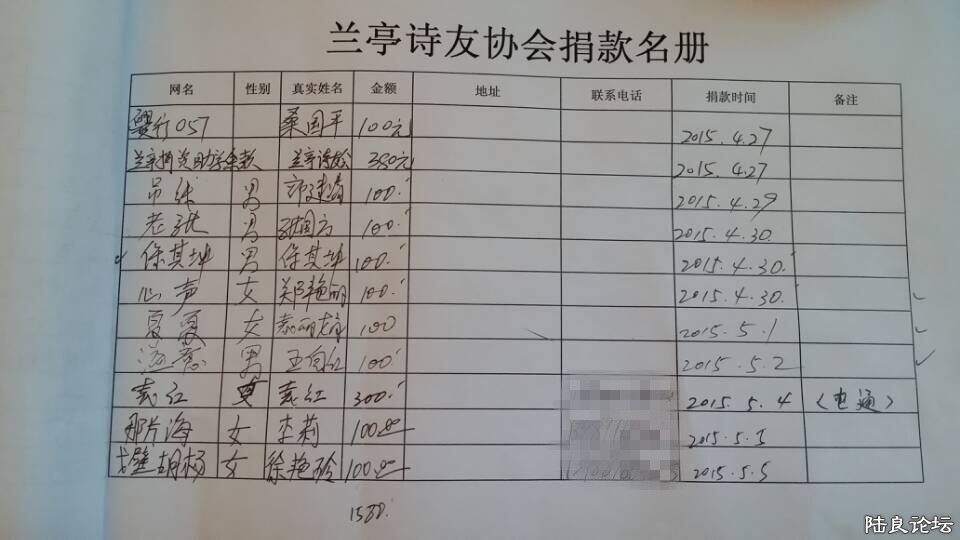 兰亭诗友协会捐款名册
网名 性别 真实姓名 金额 地址 联系电话 捐款时间 备注
行057 桑国平 100元 2015.4.27
兰亭捐资助学余款 兰亭诗友 380元 2015.4.27
男 100. 2015.4.29
老张 男 张国方 100. 2015.4.30.
保其坤 男 保其坤 100. 2015.4.30.
心声 女 郑艳 100. 2015.4.30.
夏夏 女 袁丽 100 2015.5.1
男 100. 2015.5.2
袁红 男 袁红 300. 2015.5.4 (电通)
那片海 女 李莉 100.00 2015.5.5
戈壁胡杨 女 徐艳玲 100.00 2015.5.5
1580.
陆良论坛